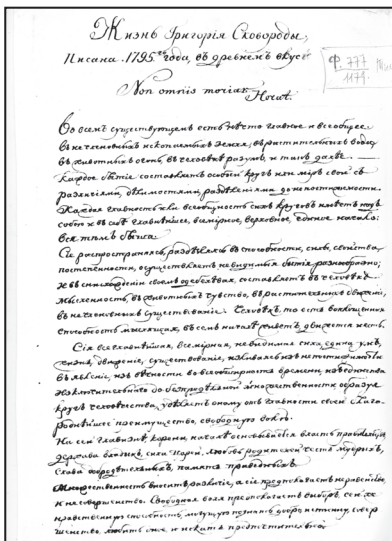 Жизнь Григорія Сковороды,
Писана 1795го года, въ древнемъ вкусѣ
Non omnis moriar.
Horat.
Ф. 777
1179.
Во всемъ существующемъ есть нѣчто главное и всеобщее
въ нечленовныхъ ископаемыхъ земля; въ растительныхъ вода;
въ животныхъ огонь; въ человѣкѣ разумъ; и такъ далѣе.
Каждое бытіе составляетъ особый кругъ или міръ свой съ
различіями, дѣлимостями, раздѣленіями до непостижимости.
Каждая главность или всеобщность сихъ круговъ имѣетъ надъ
собою и въ себѣ главнѣйшее, всемірное, верховное, единое начало:
вся тѣмъ быша.
Сіе распространяясь, раздѣляясь въ способности, силы, свойства,
постепенности, осуществляетъ невидимая бытія разнообразно;
и въ снисхожденіи своемъ составляетъ въ человѣкѣ
мысленность, въ животныхъ чувство, въ растительныхъ движеніе,
въ нечленовныхъ существованіе. Человѣкъ, то есть воплощенная
способность мыслящая, въ семъ началѣ живетъ движется и есть.
Сія всеглавнѣйшая, всемірная, невидимая сила едина умъ,
жизнь, движеніе, существованіе, изливаясь изъ непостижимости
въ явленіе, изъ вѣчности во всеобщирность времени, изъ единства
исключительнаго до безпредѣльной множественности образуя
кругъ человѣчества, удѣляетъ оному отъ главности своей благо-
роднѣйшее преимущество, свободную волю.
На сей главизнѣ, корени, началѣ основывается власть правительствъ,
держава владыкъ, сила царей, любовь родителей, честь мудрыхъ,
слава добродѣтельныхъ, память праведныхъ.
Множественность вноситъ различіе, а сіе предполагаетъ неравенство
и несовершенство. Свободная воля предполагаетъ выборъ, сей же
нравственную способность, могущую познать добро, истинну, совер-
шенство, любить оное и искать предпочтительно.